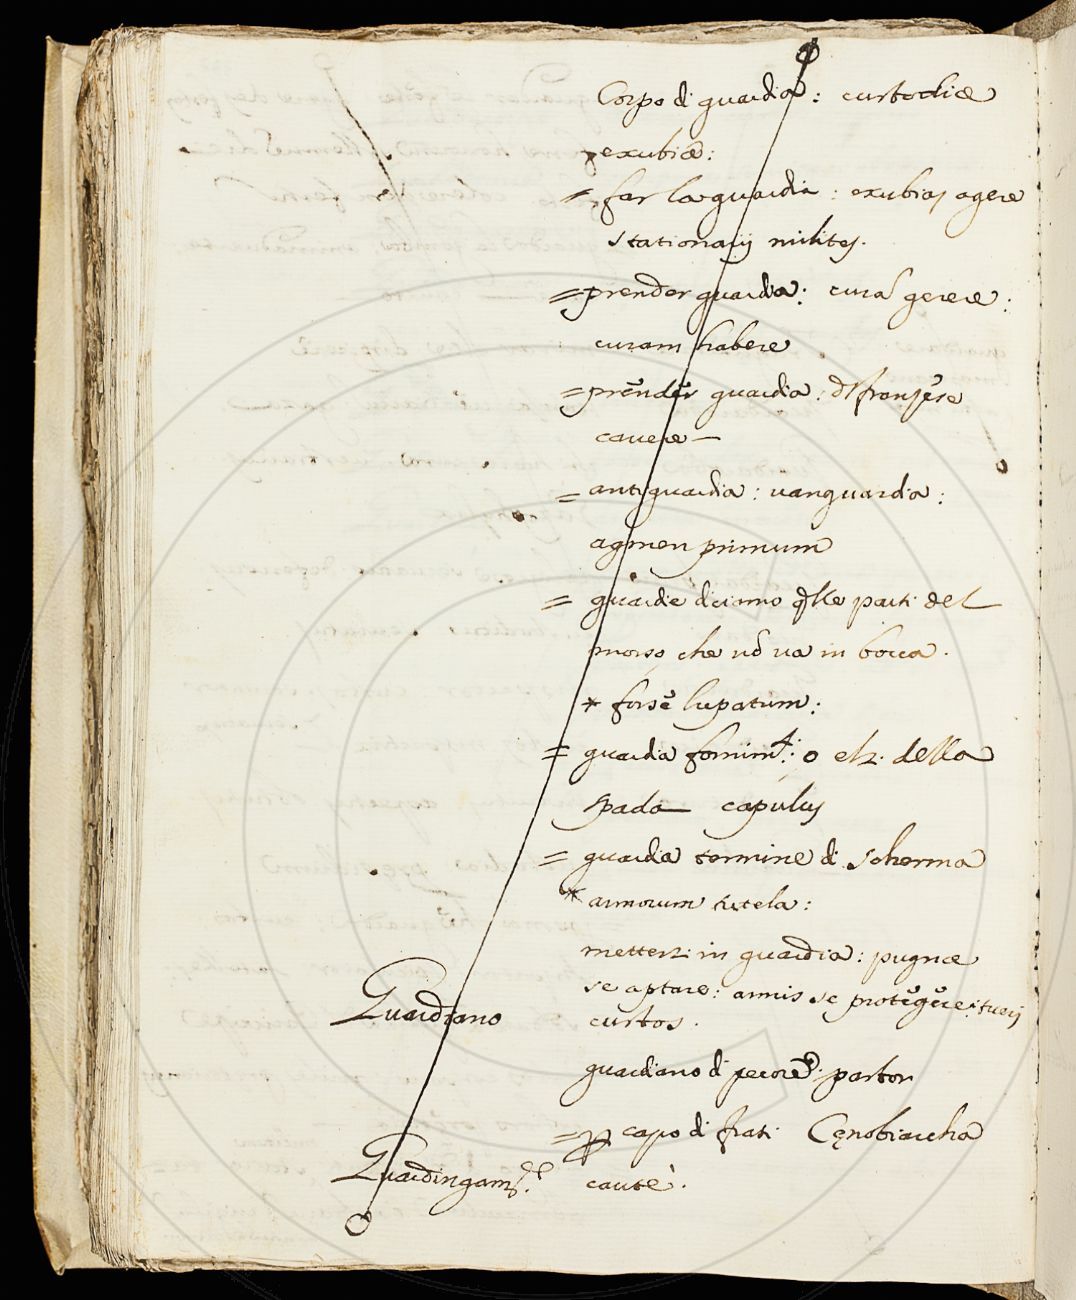 Corpo di guardia: custodiæ
exubiæ:
= far la guardia: exubias agere
stationarij milites.
= prender guardia: curã gerere:
curam habere
= prender guardia:
cavere —
= antiguardia: vanguardia:
agmen primum
= guardie diciamo qlle parti del
morso che nõ va in bocca.
* forse lupatum:
= guardia fornimti: o elz. della
spada capulus
= guardia termine di scherma
* armorum tutela:
mettersi in guardia: pugnæ
se aptare: armis se protegere: tueri
Guardiano custos.
guardiano di pecore: pastor
= capo di frati Cęnobiarcha
Guardingamte. cautè.